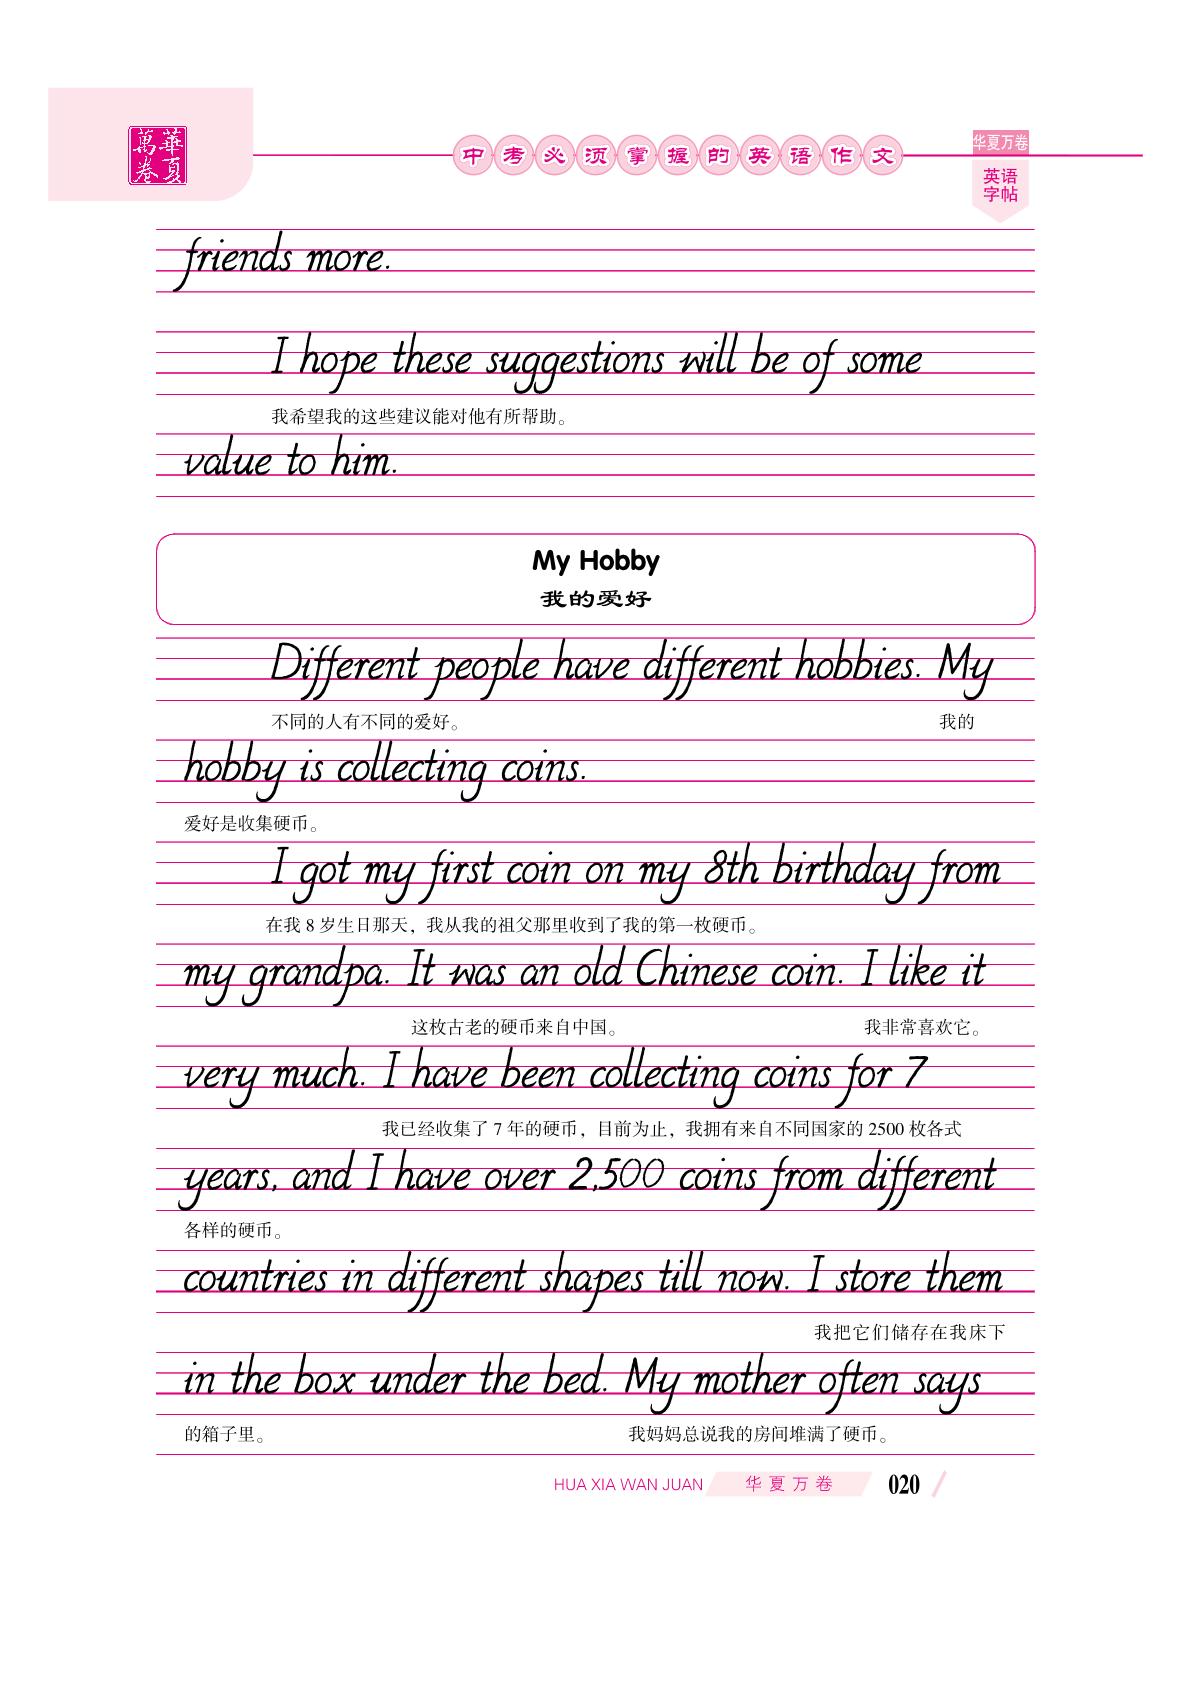 華夏
萬卷
中考必须掌握的英语作文
华夏万卷
英语
字帖
friends more.
I hope these suggestions will be of some
我希望我的这些建议能对他有所帮助。
value to him.
My Hobby
我的爱好
Different people have different hobbies. My
不同的人有不同的爱好。 我的
hobby is collecting coins.
爱好是收集硬币。
I got my first coin on my 8th birthday from
在我 8 岁生日那天，我从我的祖父那里收到了我的第一枚硬币。
my grandpa. It was an old Chinese coin. I like it
这枚古老的硬币来自中国。 我非常喜欢它。
very much. I have been collecting coins for 7
我已经收集了 7 年的硬币，目前为止，我拥有来自不同国家的 2500 枚各式
years, and I have over 2,500 coins from different
各样的硬币。
countries in different shapes till now. I store them
我把它们储存在我床下
in the box under the bed. My mother often says
的箱子里。 我妈妈总说我的房间堆满了硬币。
HUA XIA WAN JUAN 华夏万卷 020